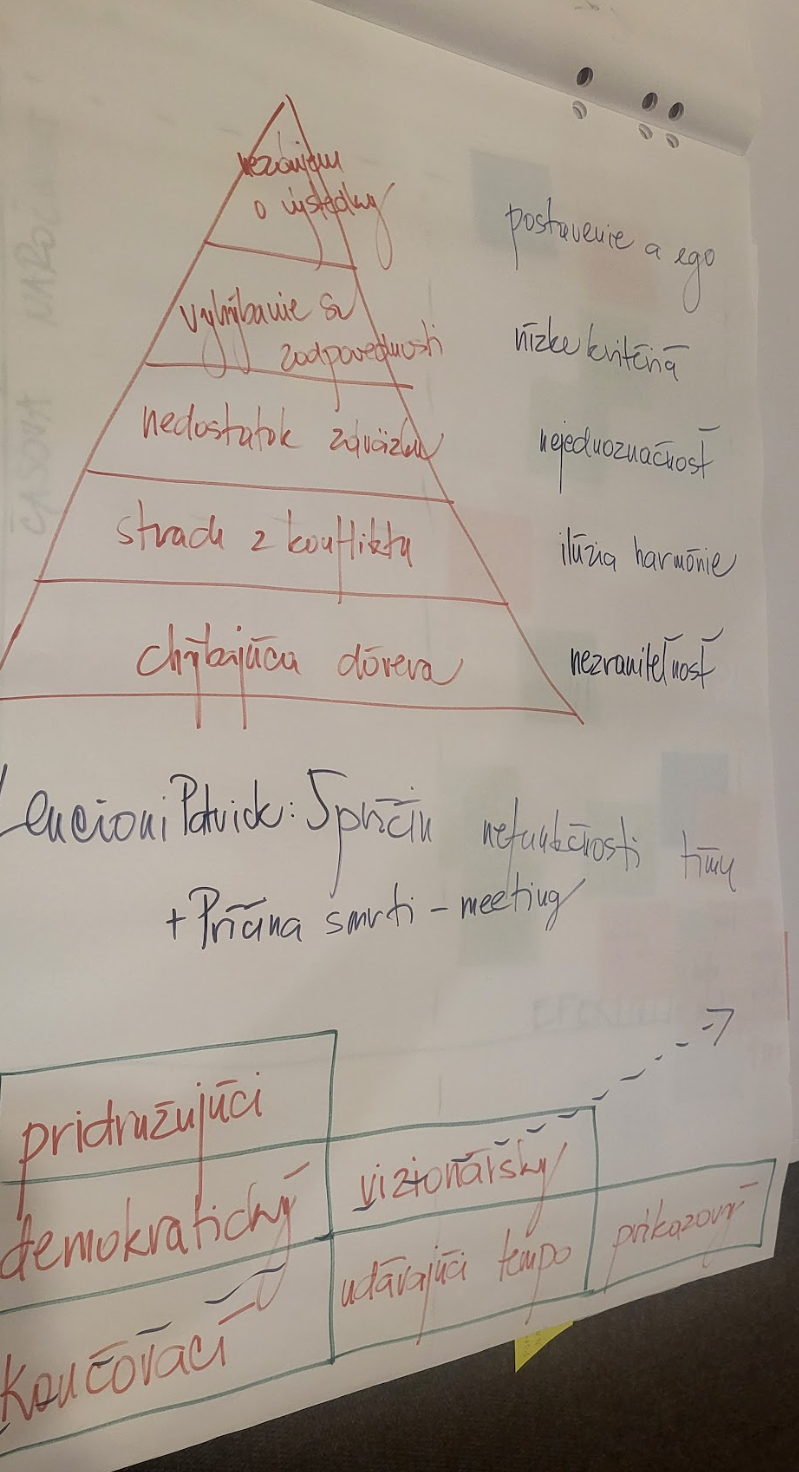 nezáujem
o výsledky
postavenie a ego
vyhýbanie sa
zodpovednosti
nízke kritériá
nedostatok záväzku
nejednoznačnosť
strach z konfliktu
ilúzia harmónie
chýbajúca dôvera
nezraniteľnosť
Lencioni Patrick: 5 príčin nefunkčnosti tímu
+ Príčina smrti - meeting
pridružujúci
demokratický
vizionářský
koučovací
udávajúci tempo
príkazový
ČASOVÁ NÁROČ